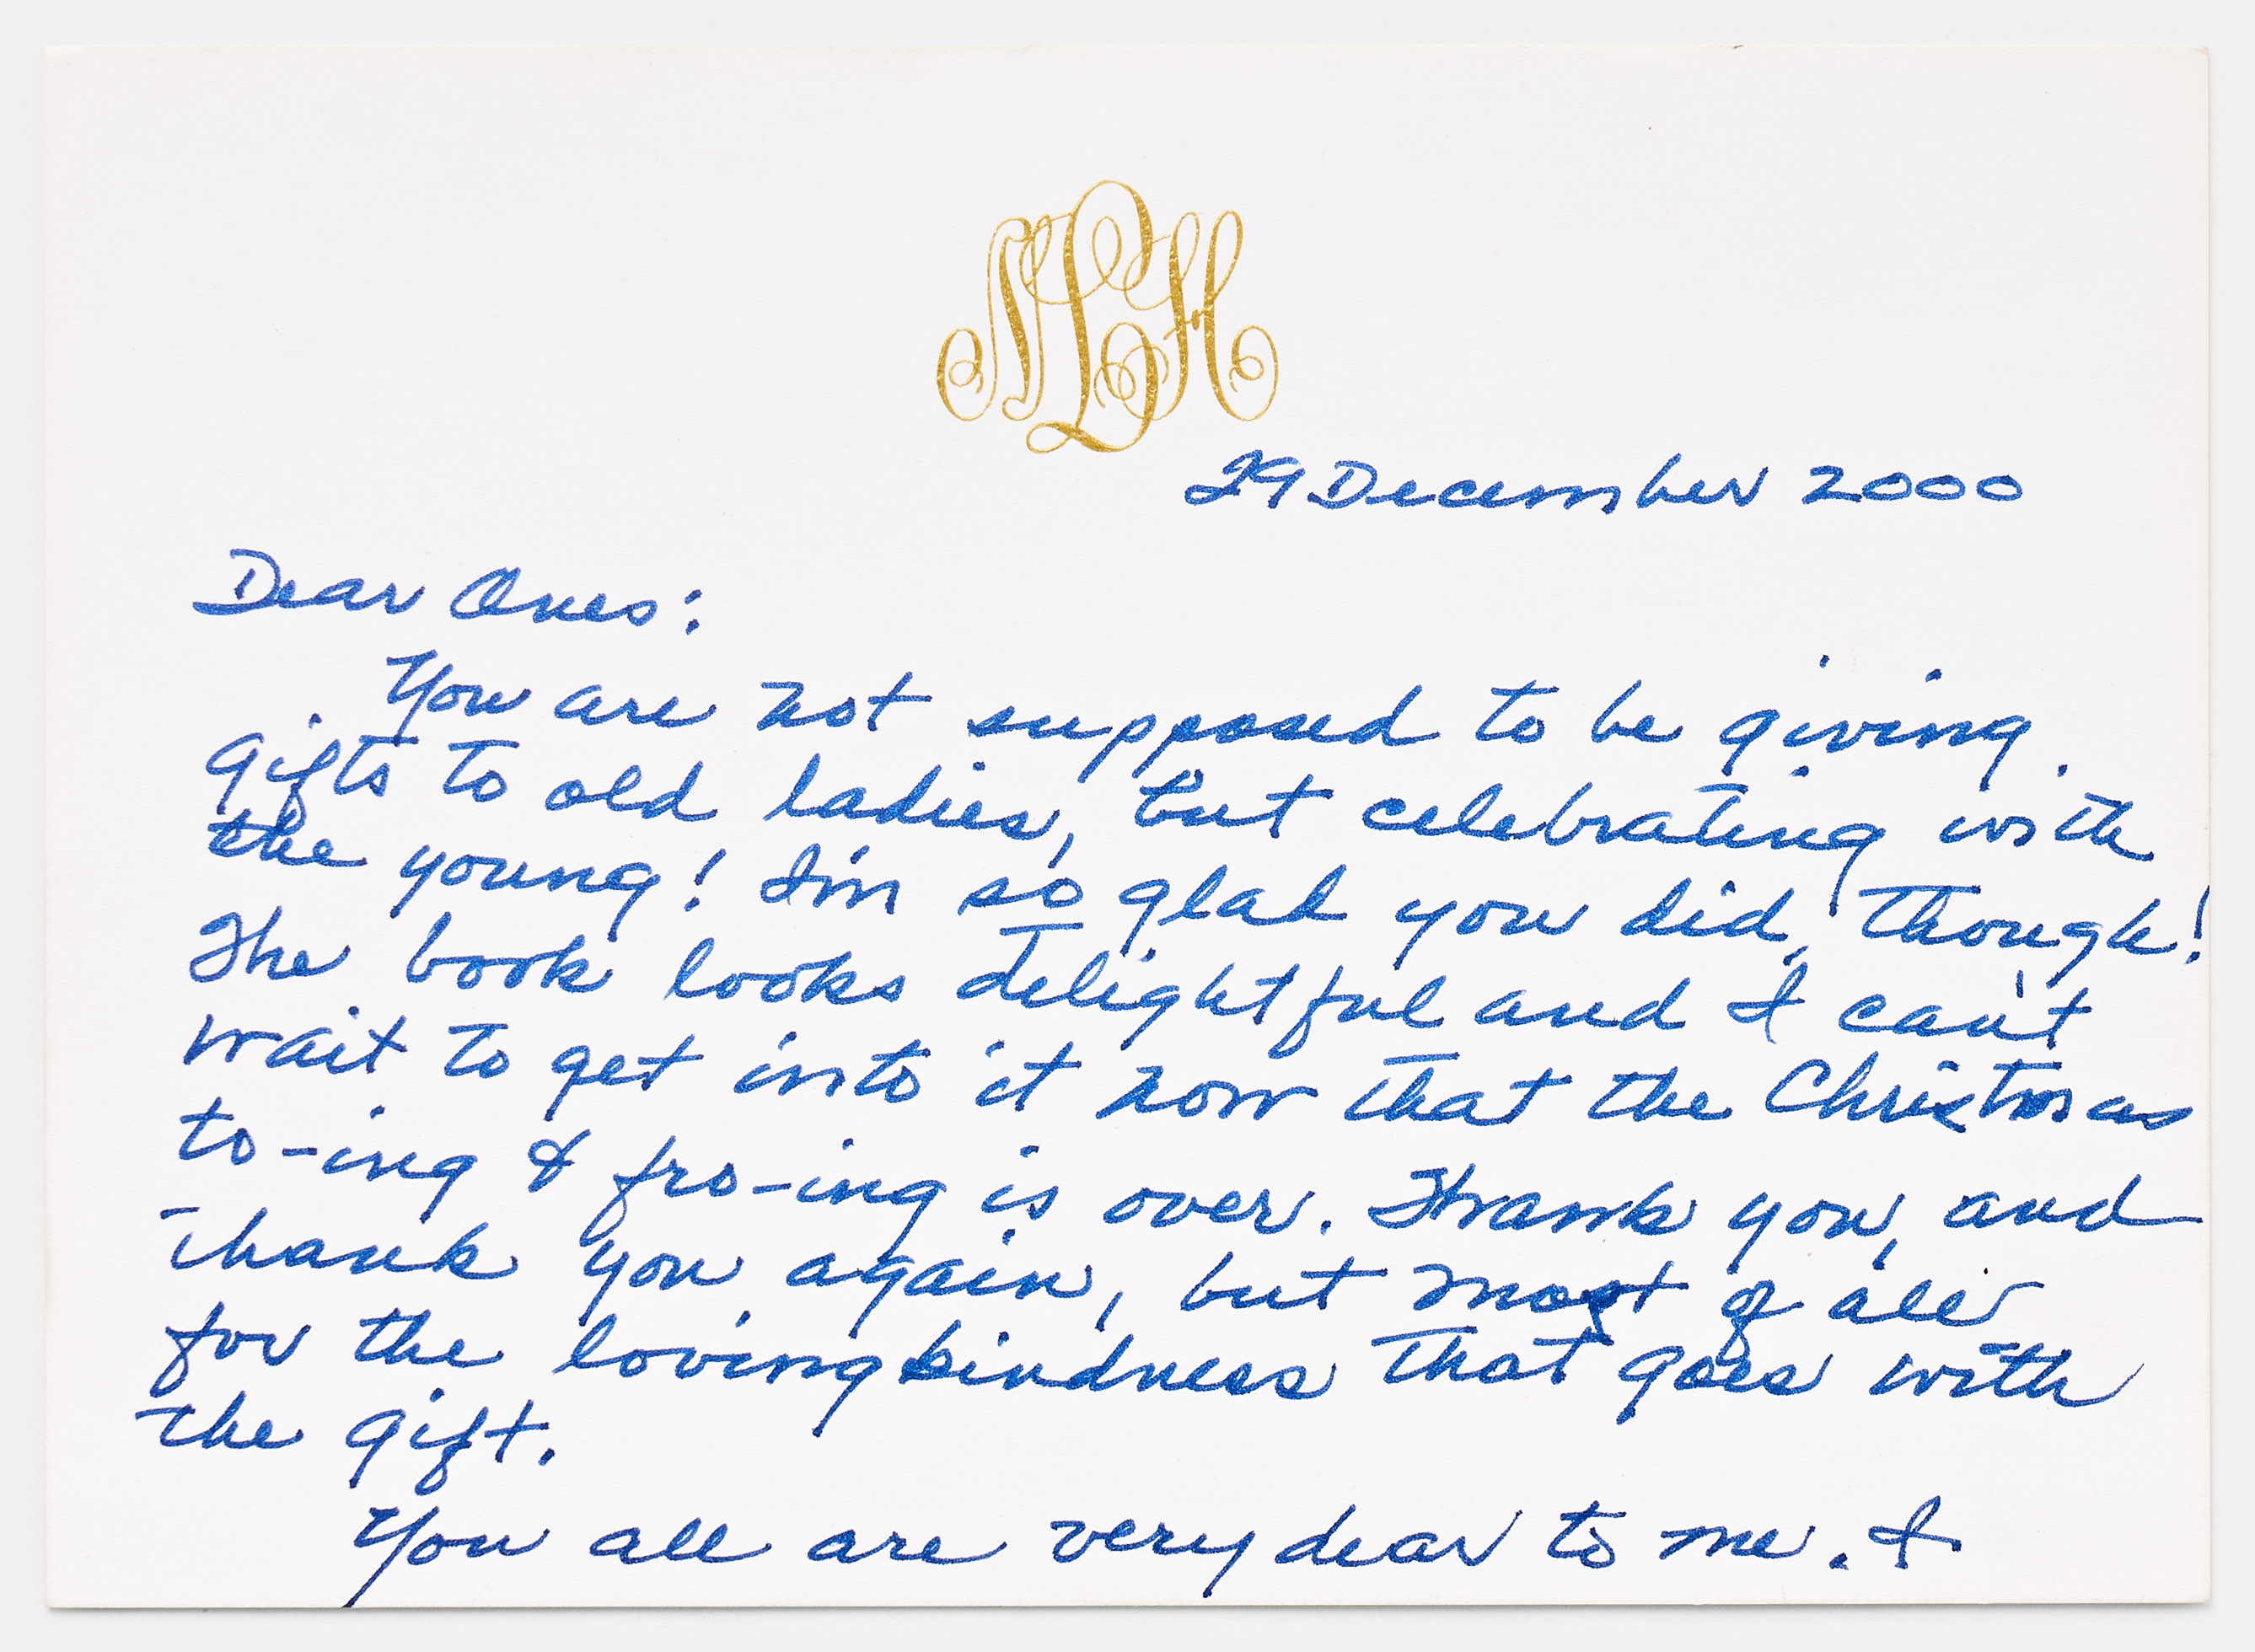 MLH
29 December 2000
Dear Ones:
You are not supposed to be giving
gifts to old ladies, but celebrating with
the young! I'm so glad you did, though!
The book looks delightful and I can't
wait to get into it now that the Christmas
to-ing & fro-ing is over. Thank you, and
thank you again, but most of all
for the loving kindness that goes with
the gift.
You all are very dear to me. I